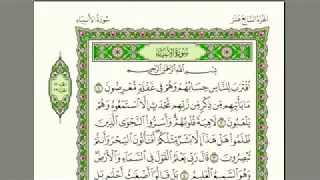 الجزء السابع عشر
سورة الأنبياء
سورة الأنبياء
بسم الله الرحمن الرحيم
اقترب للناس حسابهم وهم في غفلة معرضون ١
ما يأتيهم من ذكر من ربهم محدث إلا استمعوه وهم
يلعبون ٢ لاهية قلوبهم وأسروا النجوى الذين
ظلموا هل هذا إلا بشر مثلكم أفتأتون السحر وأنتم
تبصرون ٣ قال ربي يعلم القول في السماء والأرض
وهو السميع العليم ٤ بل قالوا أضغاث أحلام بل